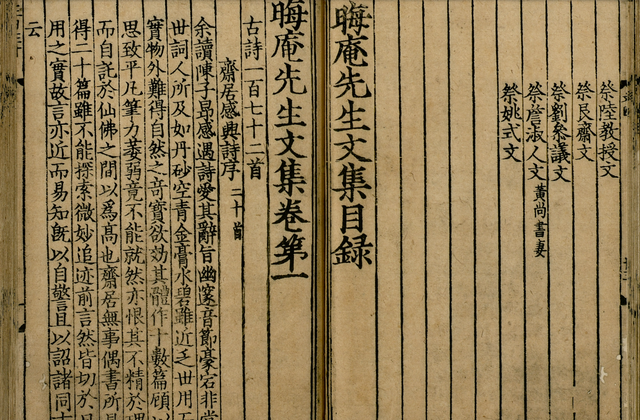 祭陸教授文
祭艮齋文
祭劉叅議文
祭詹淑人文黃尚書妻
祭姚式文
晦庵先生文集目録
晦庵先生文集卷第一
古詩一百七十二首
齋居感興詩序二十首
余讀陳子昂感遇詩愛其辭旨幽邃音節豪宕非當
世詞人所及如丹砂空青金膏水碧雖近乏世用而
實物外難得自然之奇寶欲効其體作十數篇顧以
思致平凡筆力萎弱竟不能就然亦恨其不精於理
而自託於仙佛之間以為高也齋居無事偶書所見
得二十篇雖不能探索微妙追迹前言然皆切於日
用之實故言亦近而易知旣以自警且以詔諸同志
云